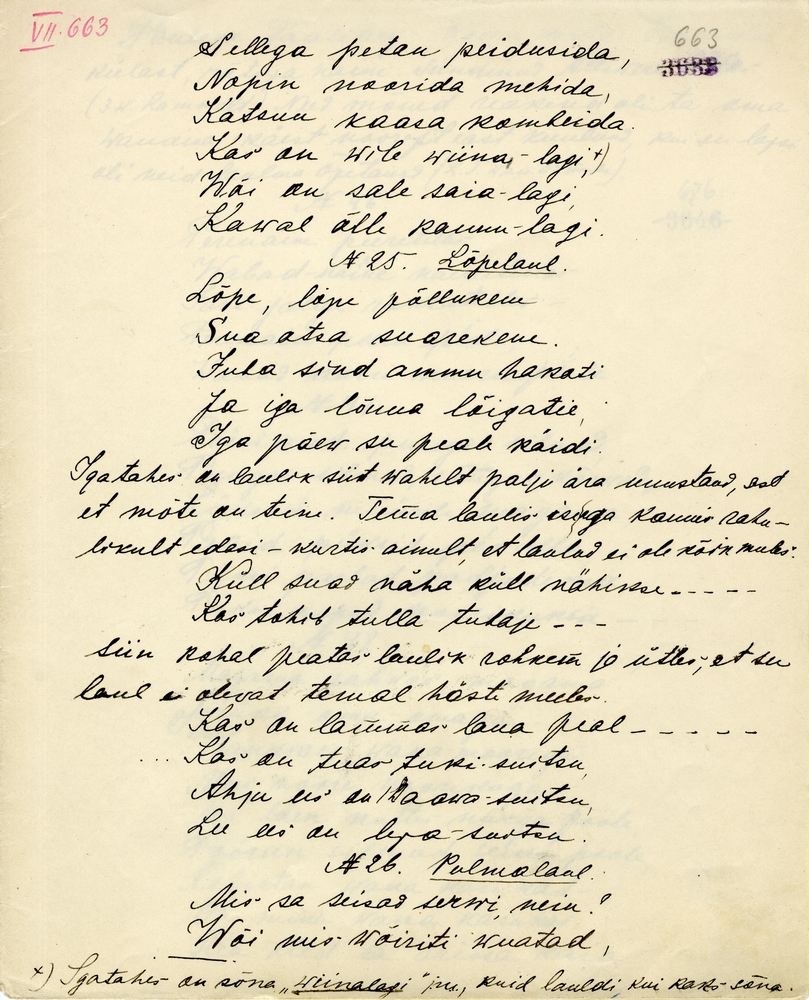 VII. 663
663
3633
Sellega petan peidusida,
Nopin noorida mehida,
Katsun kaasa kombeida.
Kas on wile wiina-lagi, +)
Wõi on sale saia-lagi,
Kawal õlle kannu-lagi.
N 25. Lõpelaul.
Lõpe, lõpe põllukene
Sua otsa suarekene.
Juba sind ammu hakati
Ja iga lõuna lõigatie,
Iga päew su peale käidi.
Igatahes on laulik siit wahelt palju ära unustand, sest
et mõte on teine. Tema laulis isega kannis rahu-
likult edasi - kurtis ainult, et laulud ei ole kõik meeles.
Küll suad näha küll nähikse - - - - -
Kas tohib tulla tubaje - - -
Siin kohal peatas laulik rohkem ja ütles, et see
laul ei olevat temal hästi meeles.
Kas on lammas laua peal - - - - -
... Kas on tuas tuki-suitsu,
Ahju ees on haawa-suitsu,
Lee ees on lepa-suitsu.
N 26. Pulmalaul.
Mis sa seisad serwi, nein?
Wõi mis wõiriti wuatad,
+) Igatahes on sõna „wiinalagi" jne., kuid lauldi kui kaks sõna.